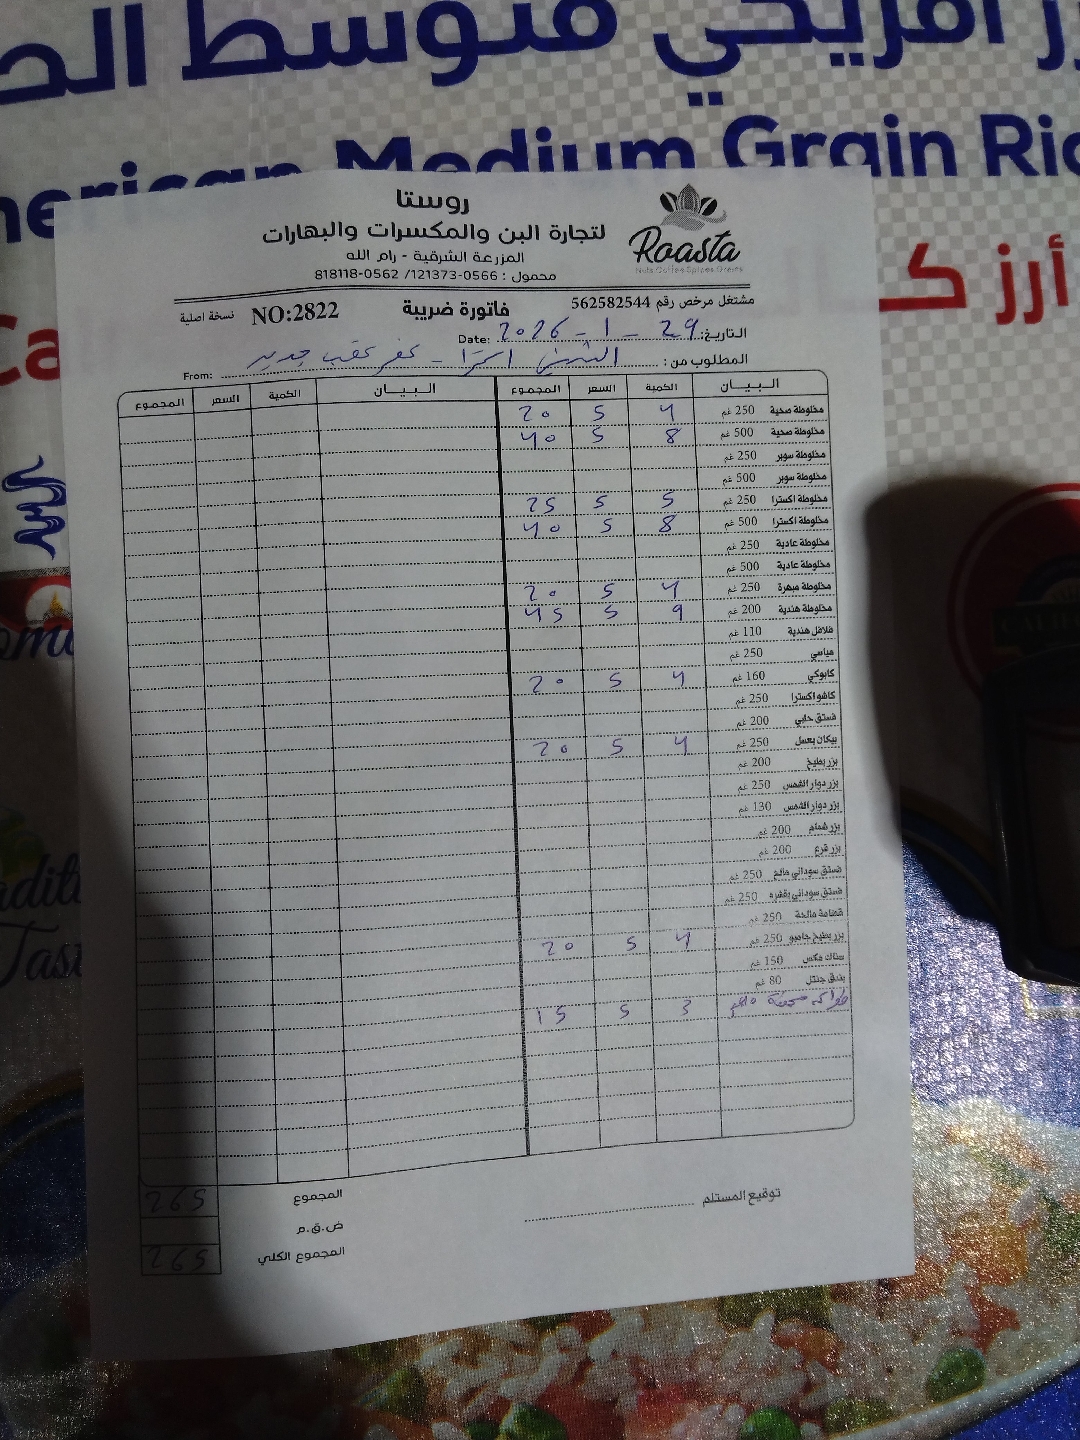 أرز أمريكي متوسط الح
American Medium Grain Ric
أرز كـ
Ca
روستا
لتجارة البن والمكسرات والبهارات
المزرعة الشرقية - رام الله
محمول : 0566-121373/ 0562-818118
Roasta
Nuts Coffee Spices Grains
مشتغل مرخص رقم 562582544
فاتورة ضريبة
NO:2822
نسخة اصلية
التاريخ: 29 - 1 - 2026 Date:
المطلوب من : الشني اكسترا - كفر عقب جديد From:
البـيـــان الكمية السعر المجموع البـيـــان الكمية السعر المجموع
مخلوطة صحية 250 غم 4 5 20
مخلوطة صحية 500 غم 8 5 40
مخلوطة سوبر 250 غم
مخلوطة سوبر 500 غم
مخلوطة اكسترا 250 غم 5 5 25
مخلوطة اكسترا 500 غم 8 5 40
مخلوطة عادية 250 غم
مخلوطة عادية 500 غم
مخلوطة مبهرة 250 غم 4 5 20
مخلوطة هندية 200 غم 9 5 45
فلافل هندية 110 غم
مياسي 250 غم
كابوكي 160 غم 4 5 20
كاشو اكسترا 250 غم
فستق حلبي 200 غم
بيكان بعسل 250 غم 4 5 20
بزر بطيخ 200 غم
بزر دوار الشمس 250 غم
بزر دوار الشمس 130 غم
بزر شمام 200 غم
بزر قرع 200 غم
فستق سوداني مالح 250 غم
فستق سوداني بقشره 250 غم
قضامة مالحة 250 غم
بزر بطيخ جامبو 250 غم 4 5 20
سناك مكس 150 غم
بندق جنتل 80 غم
فواكه مجففة 3 5 15
المجموع 265
ض.ق.م
المجموع الكلي 265
توقيع المستلم